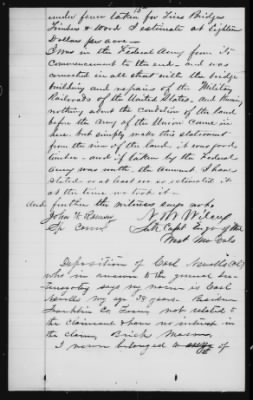 15
under fence taken for Ties Bridges
Timbers & Wood I estimate at Eighteen
Dollars per acre.
I was in the Federal Army from its
commencement to the end - and was
connected in all that with the bridge
building and repairs of the Military
Railroads of the United States. And knowing
nothing about the condition of the land
before the Army of the Union came in
here but simply make this statement
from the view of the land it was good
timber - and if taken by the Federal
Army was worth the amount I have
stated or at least so we estimated it
at the time we took it -
And further the witness says not
John W. Ramsey
Sp Comm
N. W. Wilcox
Capt Engr
Deposition of Carl
who in answer to the general Inter
rogatory says my name is Carl
my age 38 years. Residence
Franklin Co. not related to
the claimant & have no interest in
the claim, Brick Mason,
I never belonged to of